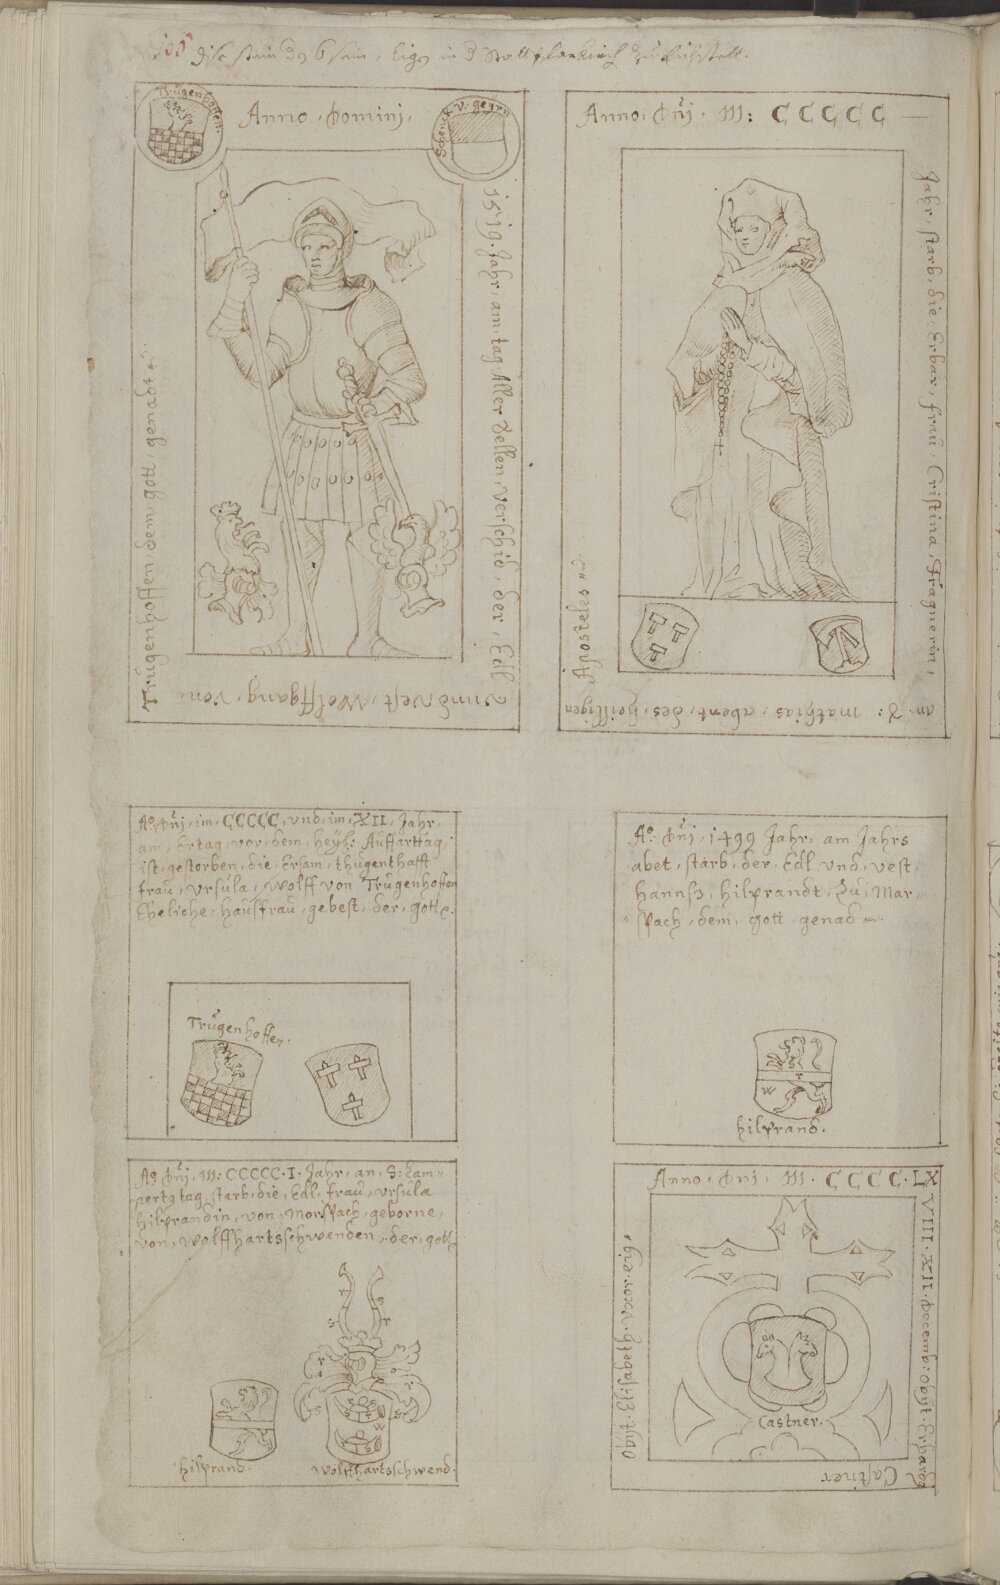 dise stain der 6 sein, ligen in d Statt pfarrkirch zu Eichstett.
Trügenhoffen.
Anno, Domini,
Schenck v. geyrn
1519. Jahr, am, tag Aller Sellen, verschid, der, Edl
vund, vest, Wolffgang, von,
Trügenhoffen, dem, gott, genadt
Anno, Dni, M: CCCCC
Jahr, starb, die, Erbar, frau, Cristina, Tragnerin,
an, S: mathias, abent, des, heilligen
Aposteles
Ao. Dni, im, CCCCC, vnd, im, XII, Jahr,
am, Ertag, vor, dem, heyl: Auffarttag,
ist, gestorben, die, Ersam, thugenthafft
frau, vrsula, Wolff von Trügenhoffen
Eheliche, hausfrau, gebest, der, gott
Trügenhoffen.
Ao. Dni, 1499 Jahr, am Jahrs
abet, starb, der, Edl vnd, vest,
hannß, hilprandt, Zu, Mar-
-Pach, dem, gott, genad
W
hilprand.
Ao. Dni, M: CCCCC. I. Jahr, an, S: Lam-
pertg tag, starb, die, Edl, frau, vrsula
hilprandin, von, Mor:Pach, geborne,
von, Wolffhartsschwenden, der, gott
hilprand.
Wolffhartsschwend.
Anno, Dni, M. CCCC. LX
VIII. XII. Decemb: Obijt. Erhardg
Castner
Obijt. Elisabeth. vxor. eig
Castner.